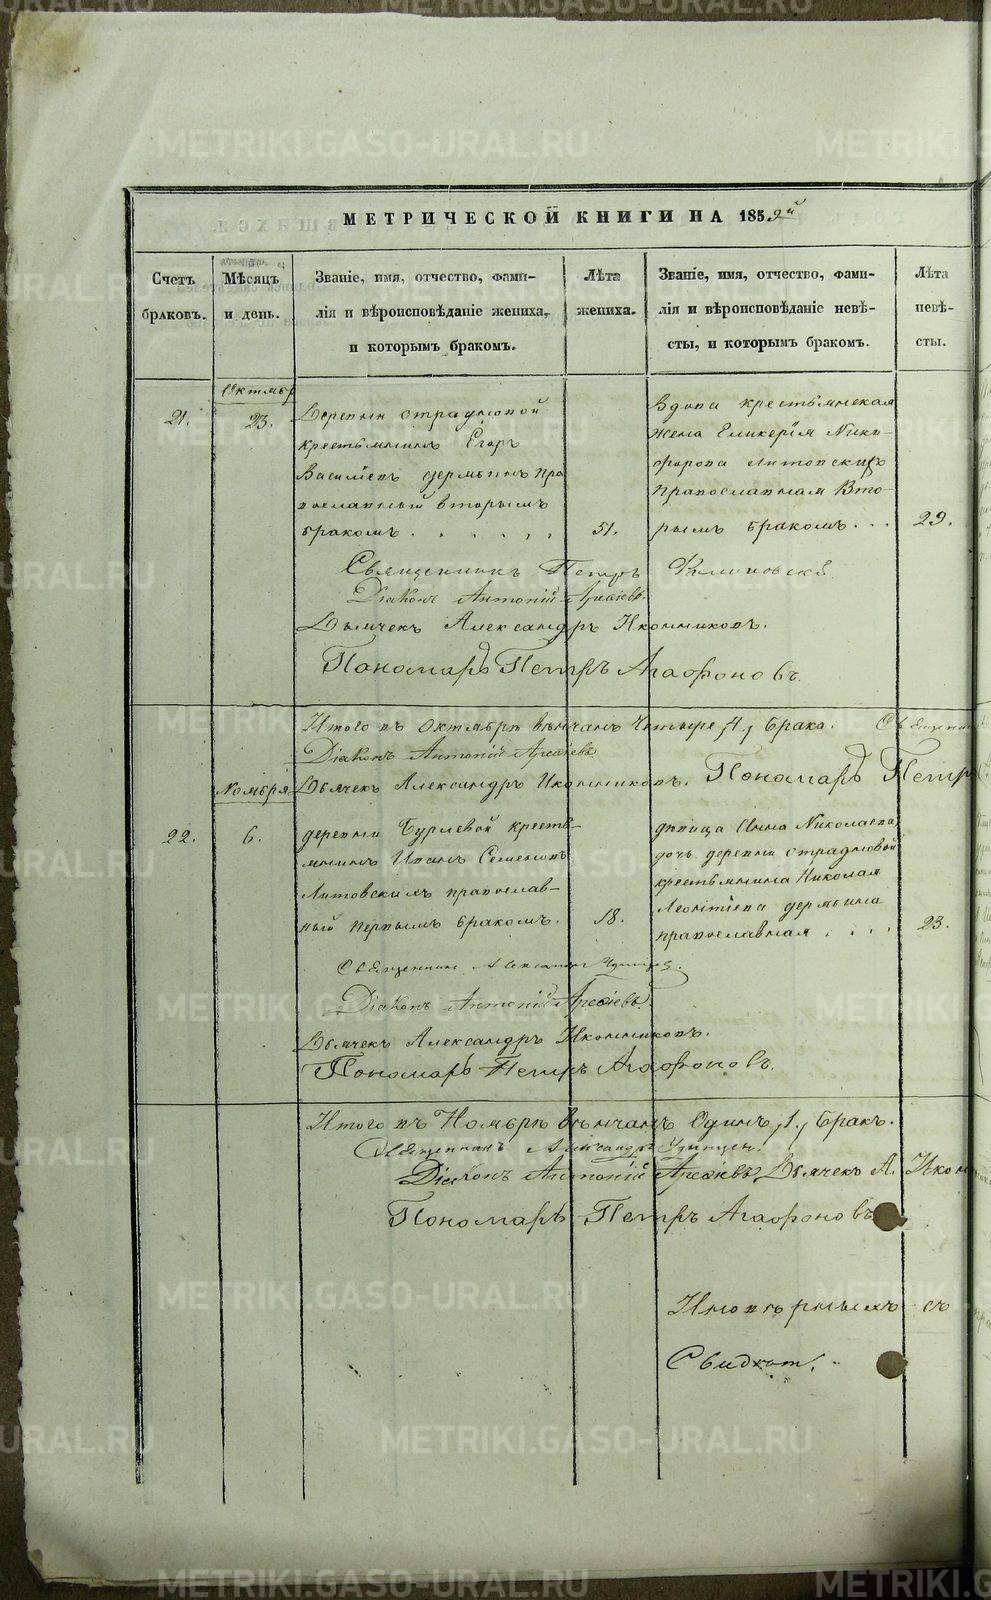 МЕТРИЧЕСКОЙ КНИГИ НА 1859й
Счетъ браковъ.
Мѣсяцъ и день.
Званіе, имя, отчество, фами-
лія и вѣроисповѣданіе жениха,
и которымъ бракомъ.
Лѣта жениха.
Званіе, имя, отчество, фами-
лія и вѣроисповѣданіе невѣ-
сты, и которымъ бракомъ.
Лѣта невѣ-
сты.
21.
23.
Деревни Страдновой
крестьянинъ Егоръ
Василіевъ дермьинъ пра
вославный вторымъ
бракомъ . . . . . .
51.
Вдова крестьянская
жена Гликерія Ники-
форова Литовскихъ
православная Вто-
рымъ бракомъ . . .
29.
Священникъ Петръ
Діаконъ Антоній
Дьячекъ Александръ Иконниковъ.
Пономарь Петръ Агафоновъ.
Итого въ Октябрѣ вѣнчанъ Четыре /4/ брака.
Діаконъ Антоній
Дьячекъ Александръ Иконниковъ. Пономарь Петр
Ноября
22.
6.
деревни Бурлевой кресть-
янинъ Иванъ Семеновъ
Литовскихъ православ-
ный первымъ бракомъ.
18.
дѣвица Анна Николаева
дочь деревни Страдновой
крестьянина Николая
Леонтіева дермьина
православная . . . .
23.
Священникъ Александръ
Діаконъ Антоній
Дьячекъ Александръ Иконниковъ.
Пономарь Петръ Агафоновъ.
Итого въ Ноябрѣ вѣнчанъ Одинъ /1/ бракъ.
Священникъ Александръ
Діаконъ Антоній Дьячекъ А. Икон
Пономарь Петръ Агафоновъ
METRIKI.GASO-URAL.RU